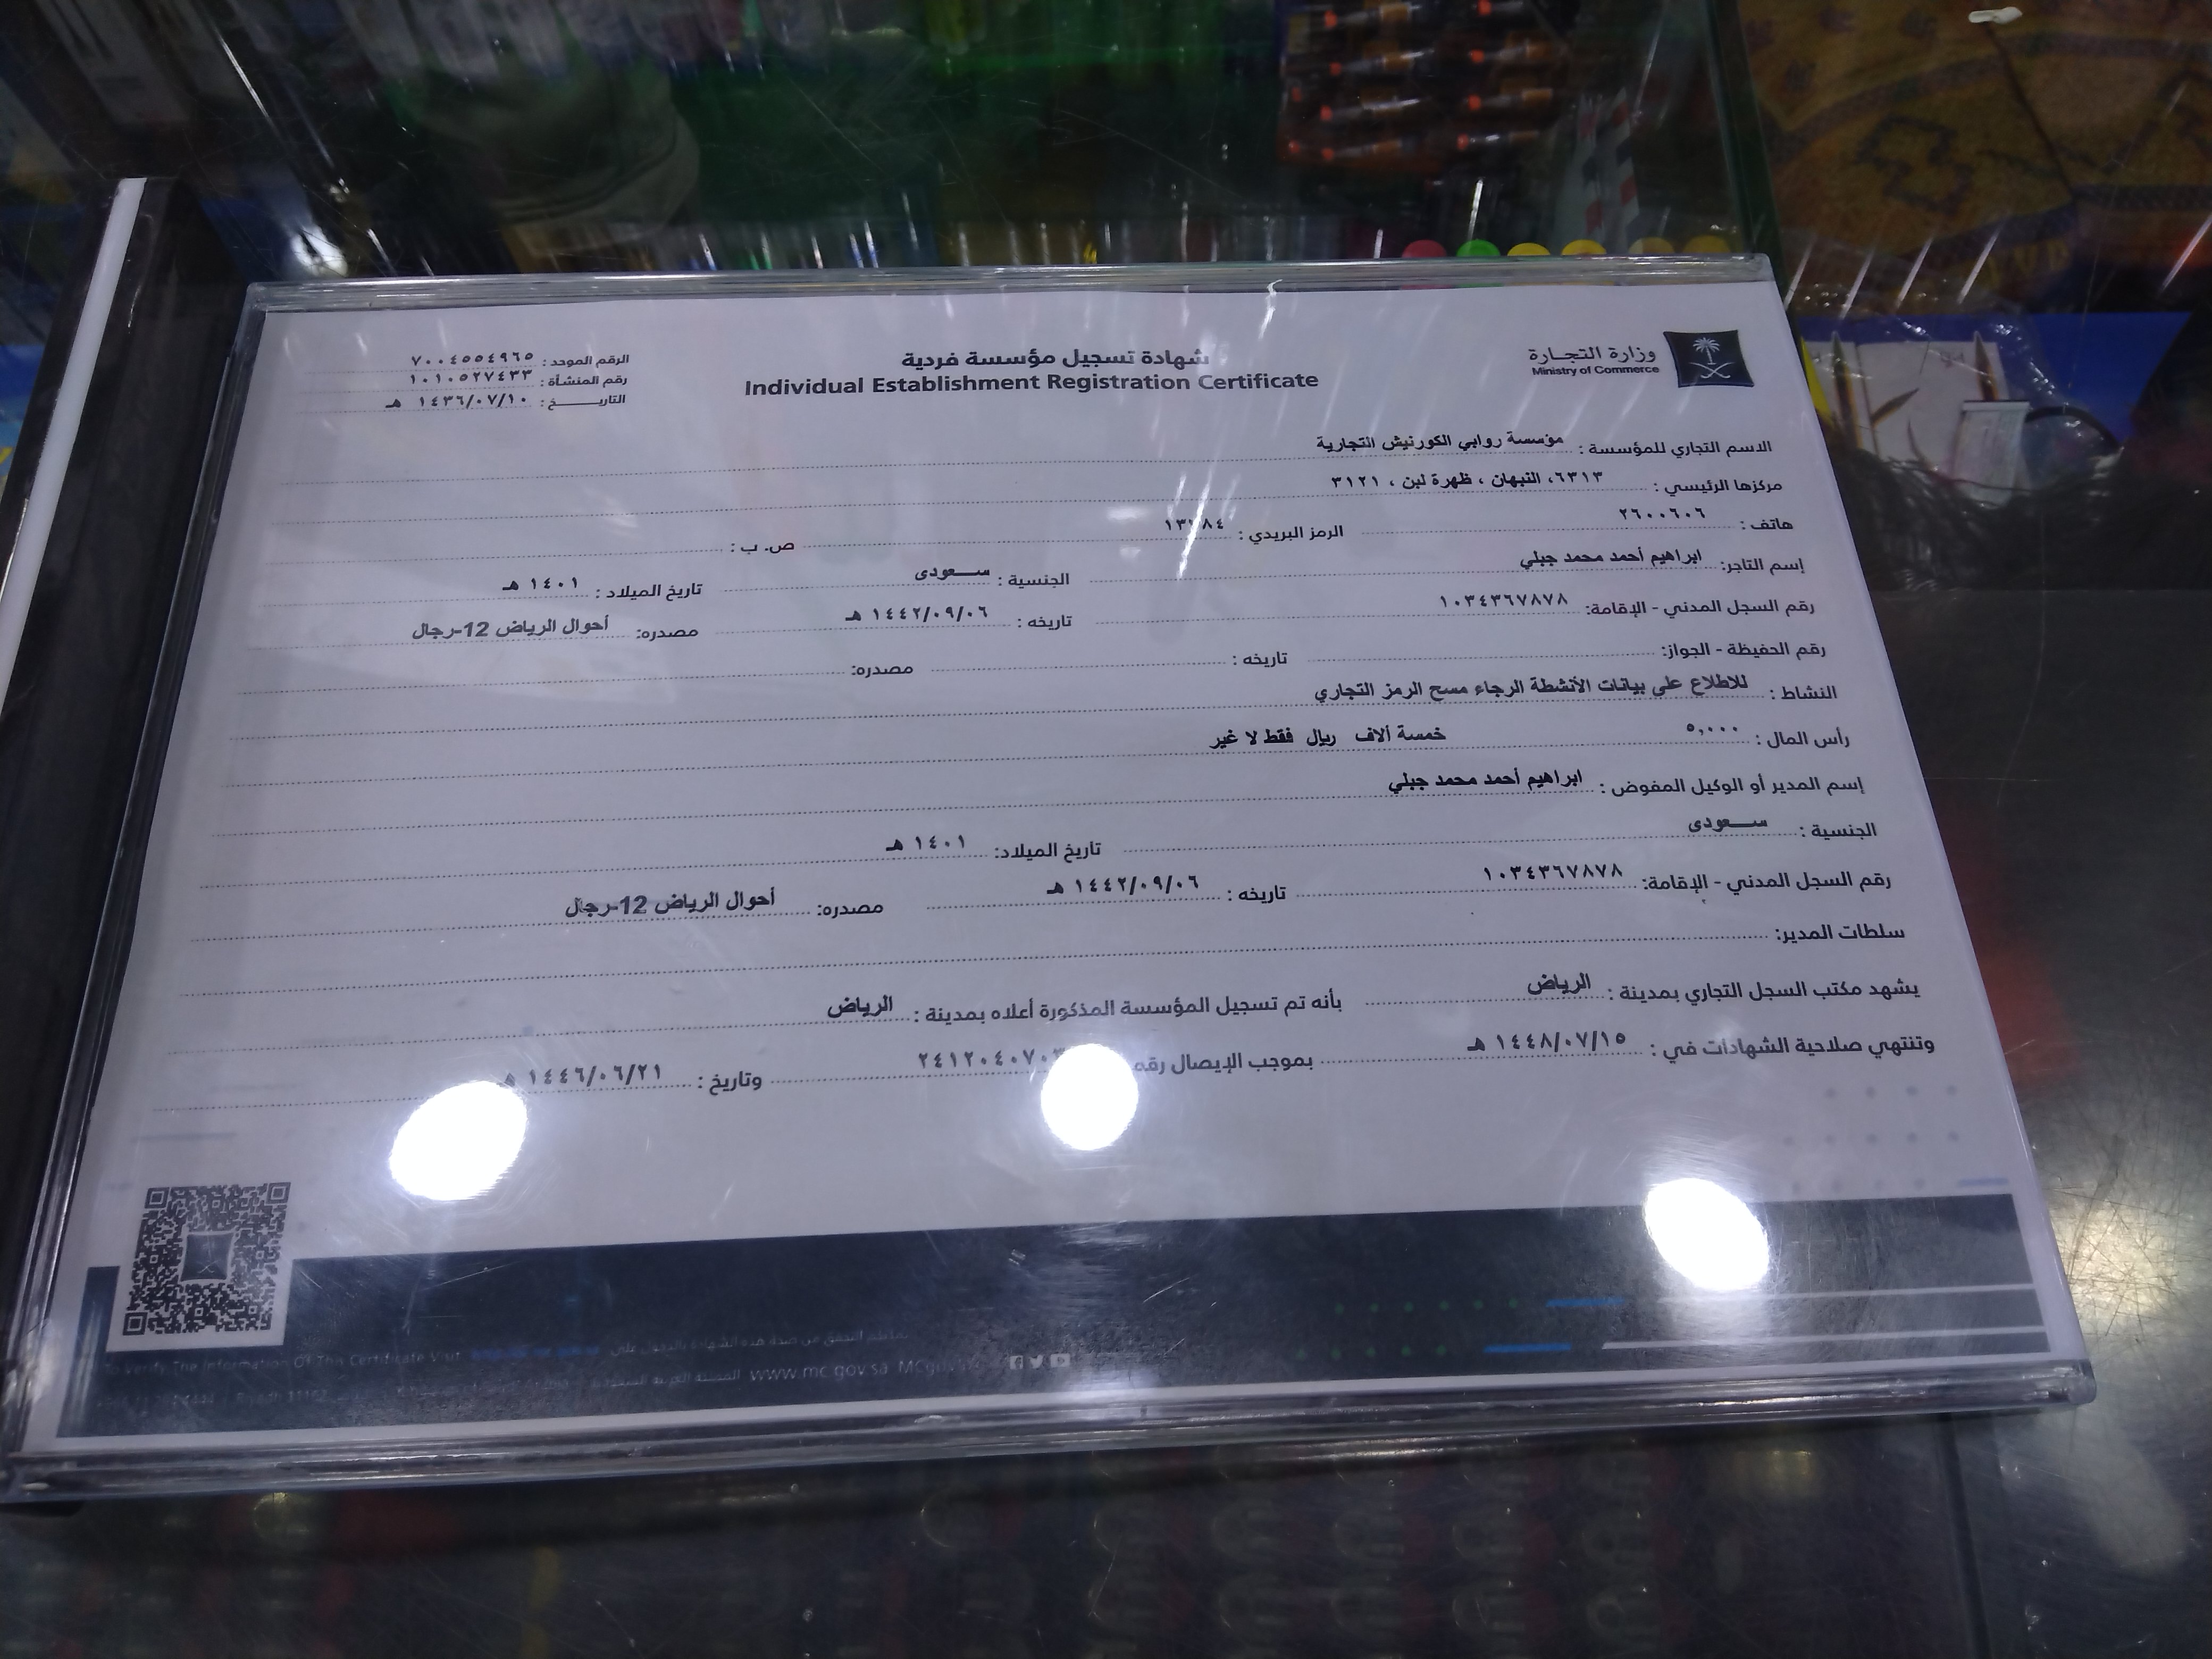 وزارة التجارة
Ministry of Commerce
شهادة تسجيل مؤسسة فردية
Individual Establishment Registration Certificate
الرقم الموحد : ٧٠٠٤٥٥٤٩٦٥
رقم المنشأة : ١٠١٠٥٢٧٤٣٣
التاريـــــخ : ١٤٣٦/٠٧/١٠ هـ
الاسم التجاري للمؤسسة : مؤسسة روابي الكورنيش التجارية
مركزها الرئيسي : ٦٣١٣، النبهان ، ظهرة لبن ، ٣١٢١
هاتف : ٢٦٠٠٦٠٦ الرمز البريدي : ص. ب :
إسم التاجر: ابراهيم أحمد محمد جبلي الجنسية : ســـعودى تاريخ الميلاد : ١٤٠١ هـ
رقم السجل المدني - الإقامة: ١٠٣٤٣٦٧٨٧٨ تاريخه : ١٤٤٢/٠٩/٠٦ هـ مصدره: أحوال الرياض 12-رجال
رقم الحفيظة - الجواز: تاريخه : مصدره:
النشاط : للاطلاع على بيانات الأنشطة الرجاء مسح الرمز التجاري
رأس المال : ٥,٠٠٠ خمسة ألاف ريال فقط لا غير
إسم المدير أو الوكيل المفوض : ابراهيم أحمد محمد جبلي
الجنسية : ســـعودى تاريخ الميلاد: ١٤٠١ هـ
رقم السجل المدني - الإقامة: ١٠٣٤٣٦٧٨٧٨ تاريخه : ١٤٤٢/٠٩/٠٦ هـ مصدره: أحوال الرياض 12-رجال
سلطات المدير:
يشهد مكتب السجل التجاري بمدينة : الرياض بأنه تم تسجيل المؤسسة المذكورة أعلاه بمدينة : الرياض
وتنتهي صلاحية الشهادات في : ١٤٤٨/٠٧/١٥ هـ بموجب الإيصال رقم وتاريخ : ١٤٤٦/٠٦/٢١ هـ
To Verify The Information Of This Certificate Visit
www.mc.gov.sa